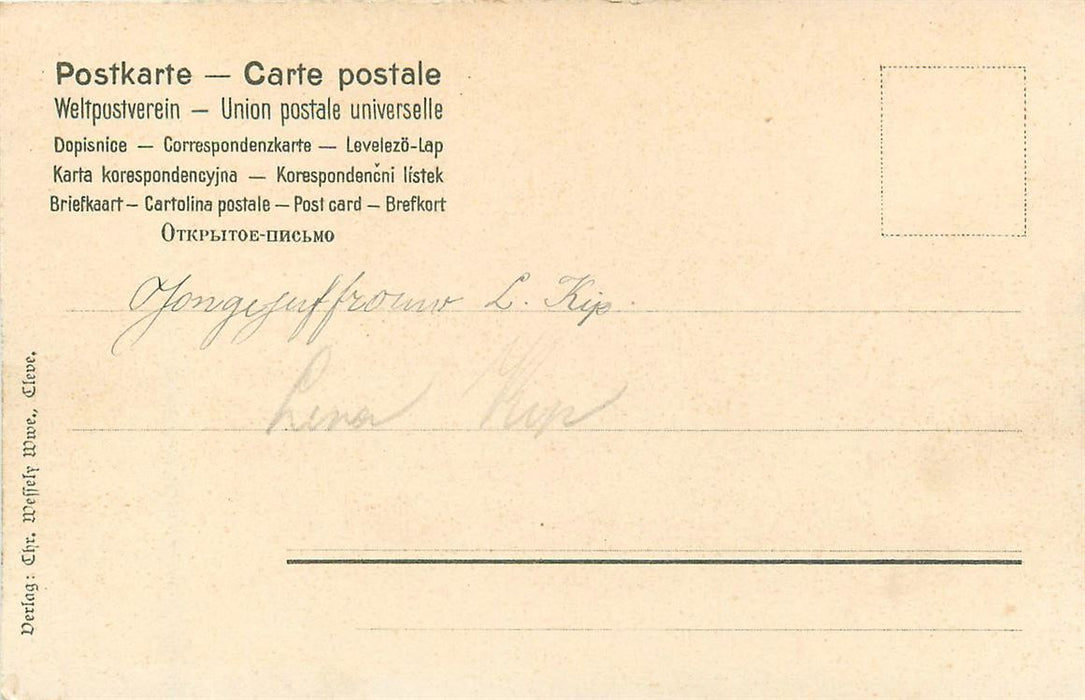 Postkarte — Carte postale
Weltpostverein — Union postale universelle
Dopisnice — Correspondenzkarte — Levelezö-Lap
Karta korespondencyjna — Korespondenčni lístek
Briefkaart — Cartolina postale — Post card — Brefkort
Открытое-письмо
Jongejuffrouw L. Kip.
Lena Kip
Verlag: Chr. Wessely Wwe., Cleve.